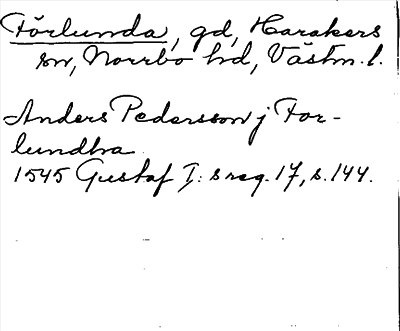 Förlunda, gd, Harakers
sn, Norrbo hd, Västm. l.
Anders Pedersson j For-
lundha
1545 Gustaf I: s reg. 17, s. 144.